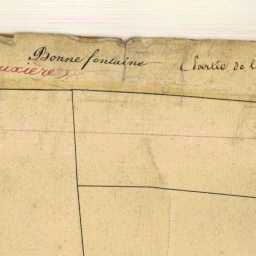 Bonne fontaine
(Partie de l
uxière)